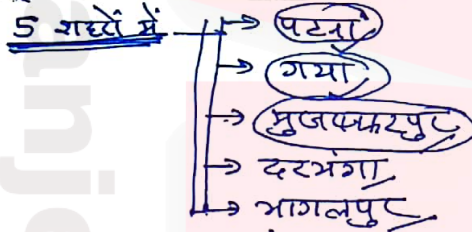 5 शहरों में → पटना
→ गया
→ मुजफ्फरपुर
→ दरभंगा
→ भागलपुर